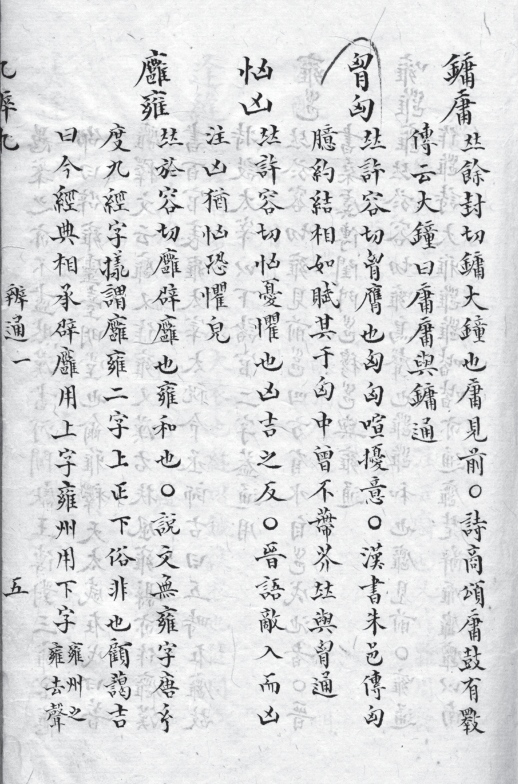 鏞庸 𠀤餘封切鏞大鐘也庸見前○詩商頌庸鼓有斁
傳云大鐘曰庸庸與鏞通
胷匈 𠀤許容切胷膺也匈匈喧擾意○漢書朱邑傳匈
臆約結相如賦其于匈中曾不蔕芥𠀤與胷通
恟凶 𠀤許容切恟憂懼也凶吉之反○晉語敵入而凶
注凶猶恟恐懼皃
廱雍 𠀤於容切廱辟廱也雍和也○說文無雍字唐𤣥
度九經字㨾謂廱雍二字上正下俗非也顧藹吉
曰今經典相承辟廱用上字雍州用下字 雍州之
雍去聲
辨通一
五